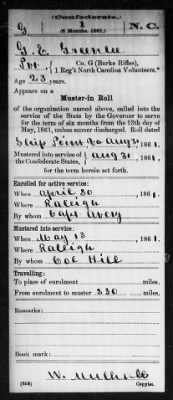 Confederate.
G 1 N. C.
(6 Months, 1861.)
G. E.
Pvt. Co. G (Burke Rifles),
1 Reg't North Carolina Volunteers.*
Age 23 years.
Appears on a
Muster-in Roll
of the organization named above, called into the
service of the State by the Governor to serve
for the term of six months from the 13th day
of May, 1861, unless sooner discharged. Roll dated
Ship Point Va Aug 31, 1861.
Mustered into service of Aug 31, 1861.
for the term herein set forth.
Enrolled for active service:
When April 30, 1861.
Where Raleigh
By whom Capt. Avery
Mustered into service:
When May 13, 1861.
Where Raleigh
By whom Col Hill
Travelling:
To place of enrolment miles.
From enrolment to muster 230 miles.
Remarks:
Book mark:
W.
Copyist.